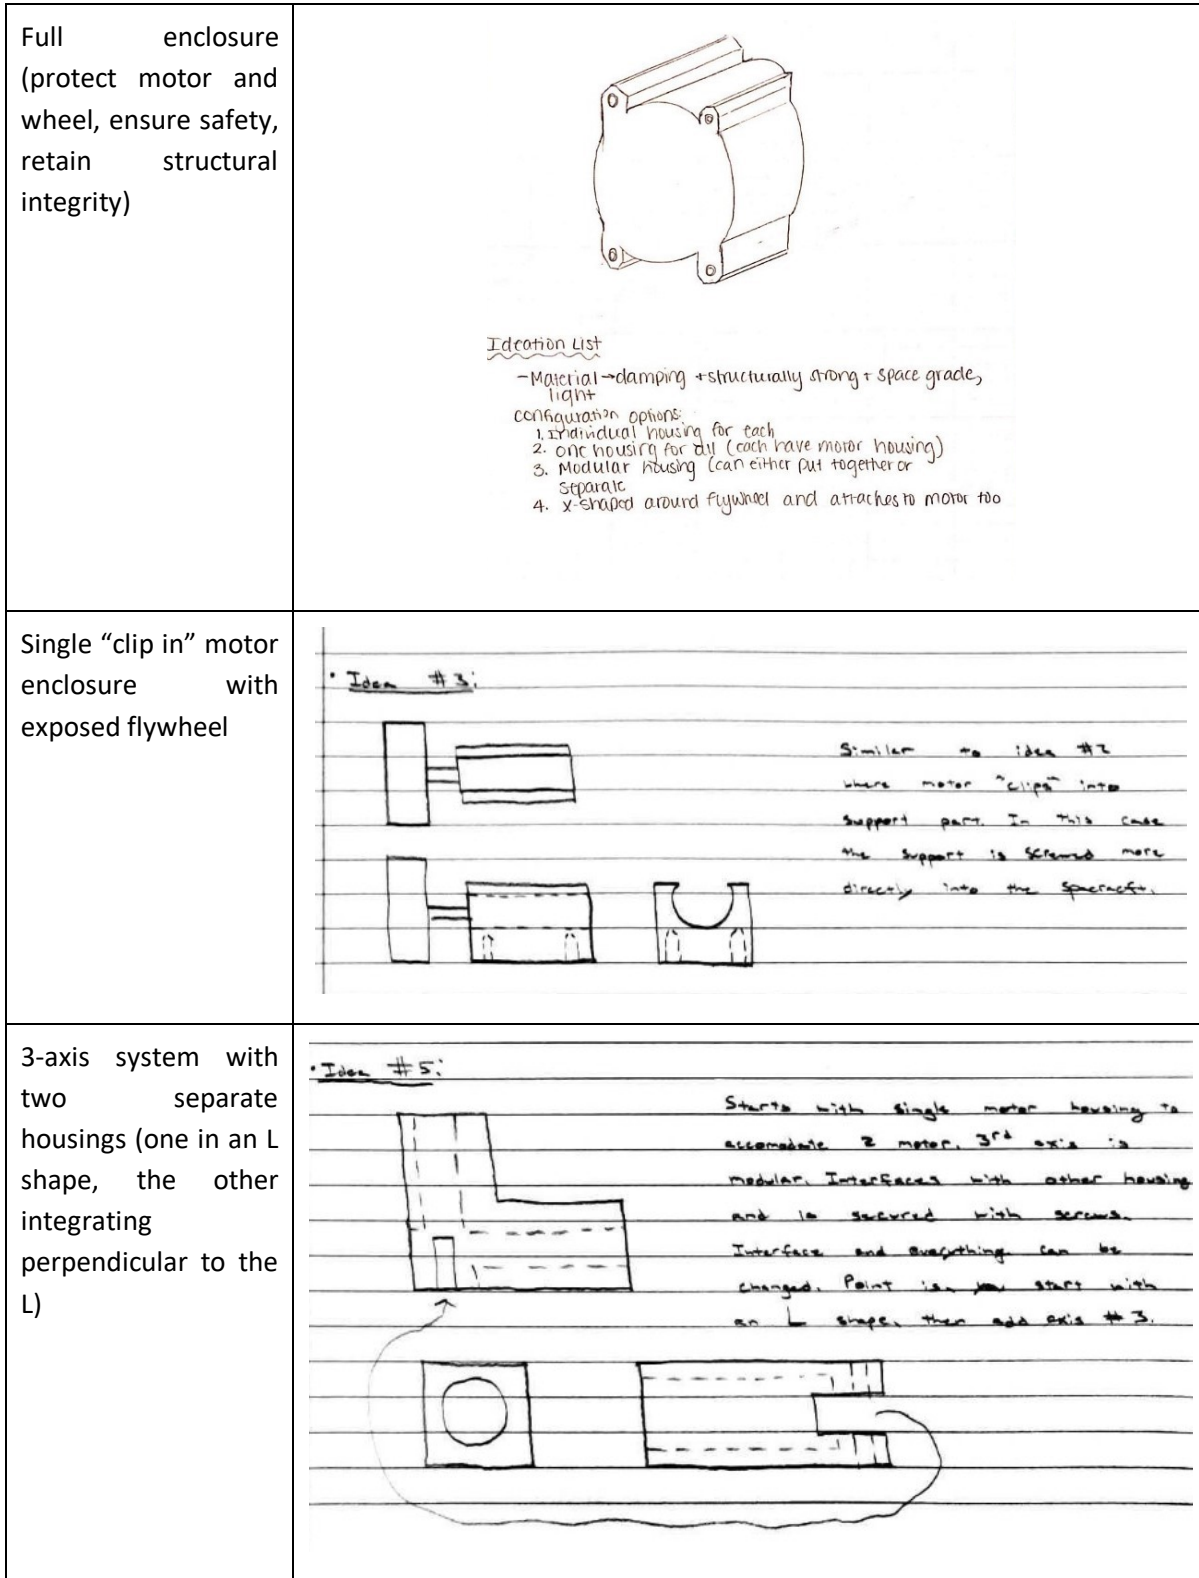 Full enclosure
(protect motor and
wheel, ensure safety,
retain structural
integrity)
Ideation List
-Material→damping + structurally strong + space grade,
light
configuration options:
1. Individual housing for each
2. one housing for all (each have motor housing)
3. Modular housing (can either put together or
separate
4. X-shaped around flywheel and attaches to motor too
Single “clip in” motor
enclosure with
exposed flywheel
• Idea #3:
Similar to idea #2
where motor "clips" into
support part. In this case
the support is screwed more
directly into the spacecraft.
3-axis system with
two separate
housings (one in an L
shape, the other
integrating
perpendicular to the
L)
• Idea #5:
Starts with single motor housing to
accomodate 2 motor. 3rd axis is
modular. Interfaces with other housing
and is secured with screws.
Interface and everything can be
changed. Point is, you start with
an L shape, then add axis #3.